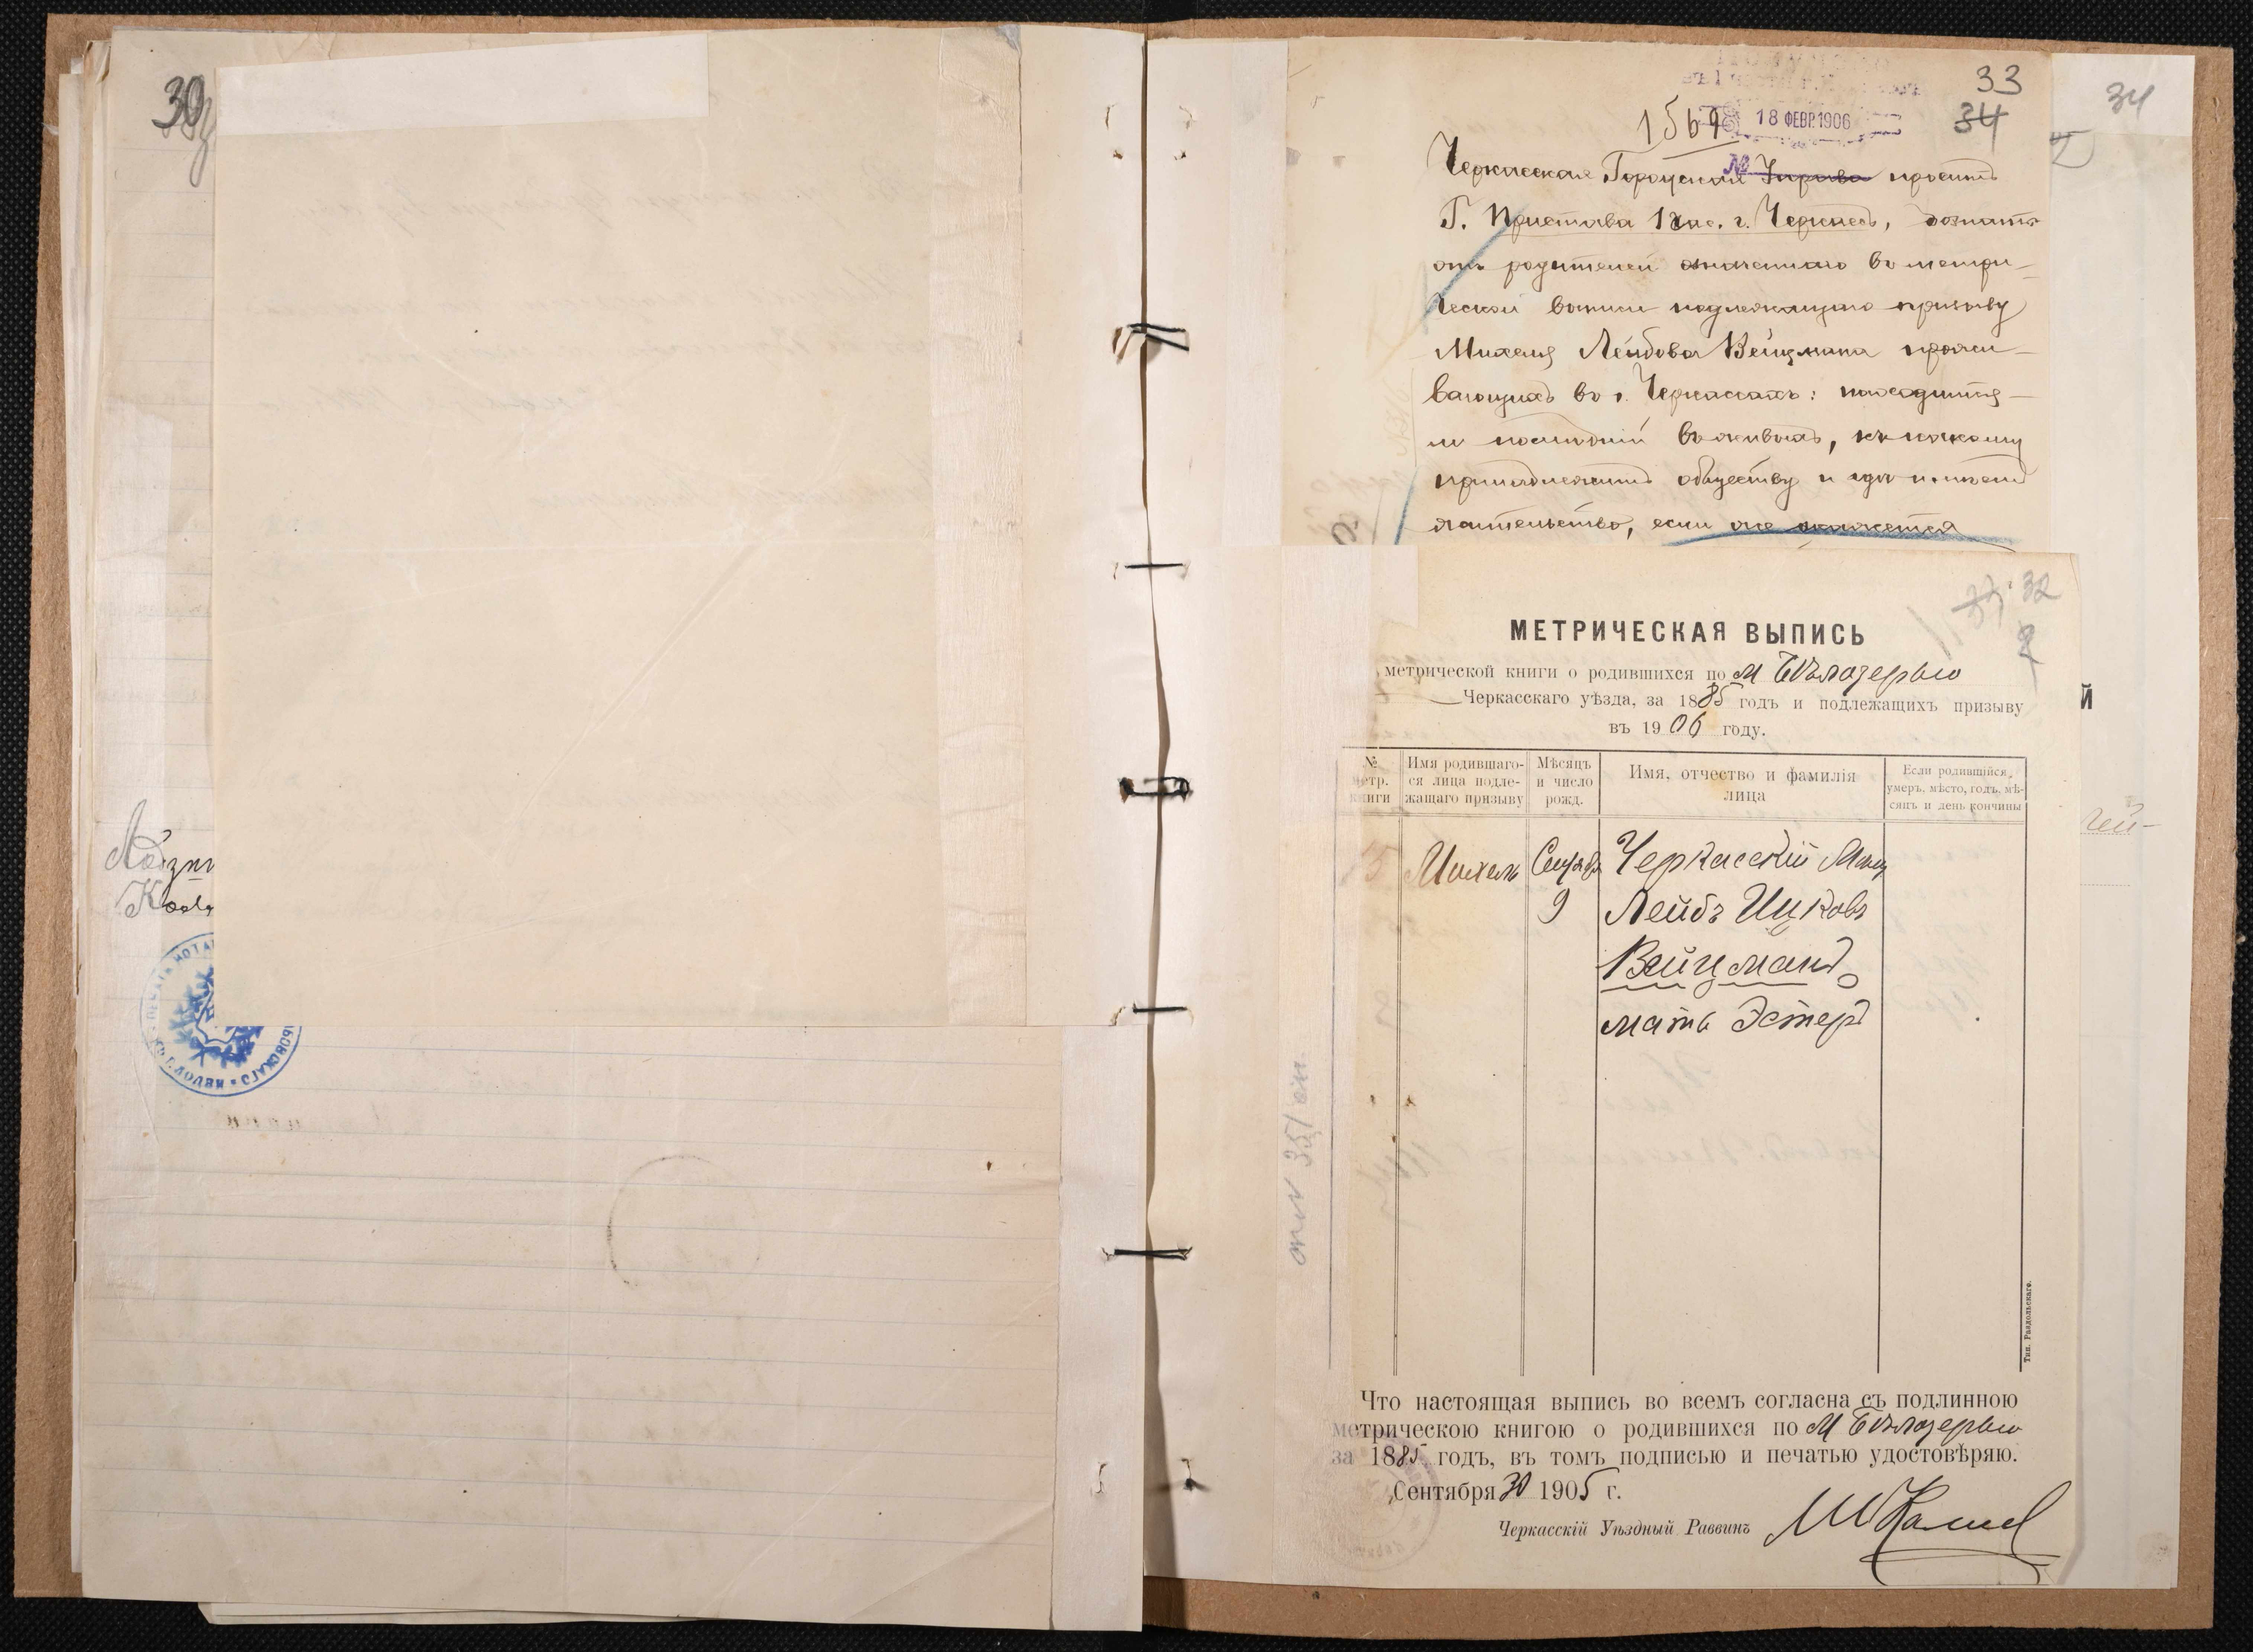 30
33
34
34
18 ФЕВР.1906
1569
№
Черкасская Городская Управа проситъ
Г. Пристава 1 час. г. Черкасъ, дознать
отъ родителей означеннаго въ метри-
ческой выписи подлежащаго призыву
Михеля Лейбова Вейцмана прожи-
вающихъ въ г. Черкассахъ: находится-
ли послѣдній въ живыхъ, къ какому
принадлежитъ обществу и гдѣ имѣетъ
жительство, если же окажется
32
МЕТРИЧЕСКАЯ ВЫПИСЬ
метрической книги о родившихся по м Бѣлозерью
Черкасскаго уѣзда, за 1885 годъ и подлежащихъ призыву
въ 1906 году.
№ метр. книги
Имя родившаго-
ся лица подле-
жащаго призыву
Мѣсяцъ
и число
рожд.
Имя, отчество и фамилія
лица
Если родившійся,
умеръ, мѣсто, годъ, мѣ-
сяцъ и день кончины
15 Михель Сентября Черкасскій Мѣщ
9 Лейбъ Ицковъ
Вейцманъ
мать Эстеръ
Тип. Раздольскаго.
Что настоящая выпись во всемъ согласна съ подлинною
метрическою книгою о родившихся по м Бѣлозерью
за 1885 годъ, въ томъ подписью и печатью удостовѣряю.
Сентября 30 1905 г.
Черкасскій Уѣздный Раввинъ
й
чей-